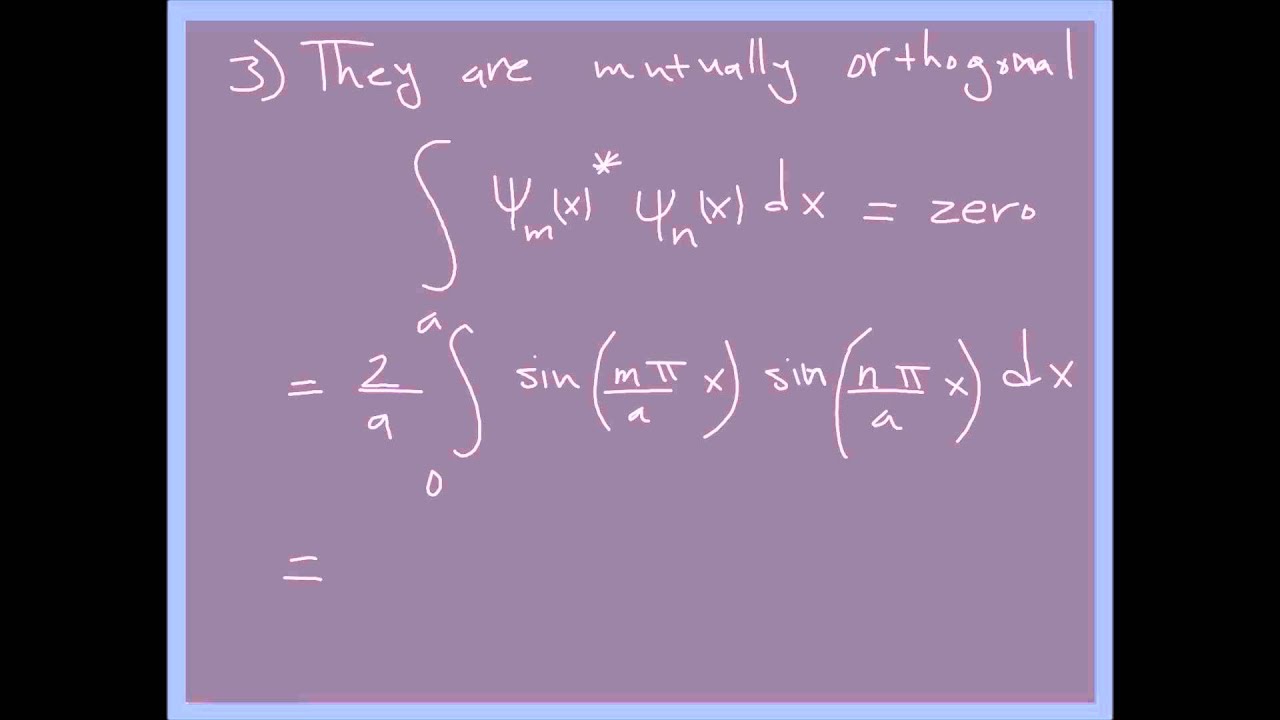 3) They are mutually orthogonal
∫ ψₘ(x)* ψₙ(x) dx = zero
= 2/a ∫₀ᵃ sin(mπ/a x) sin(nπ/a x) dx
=